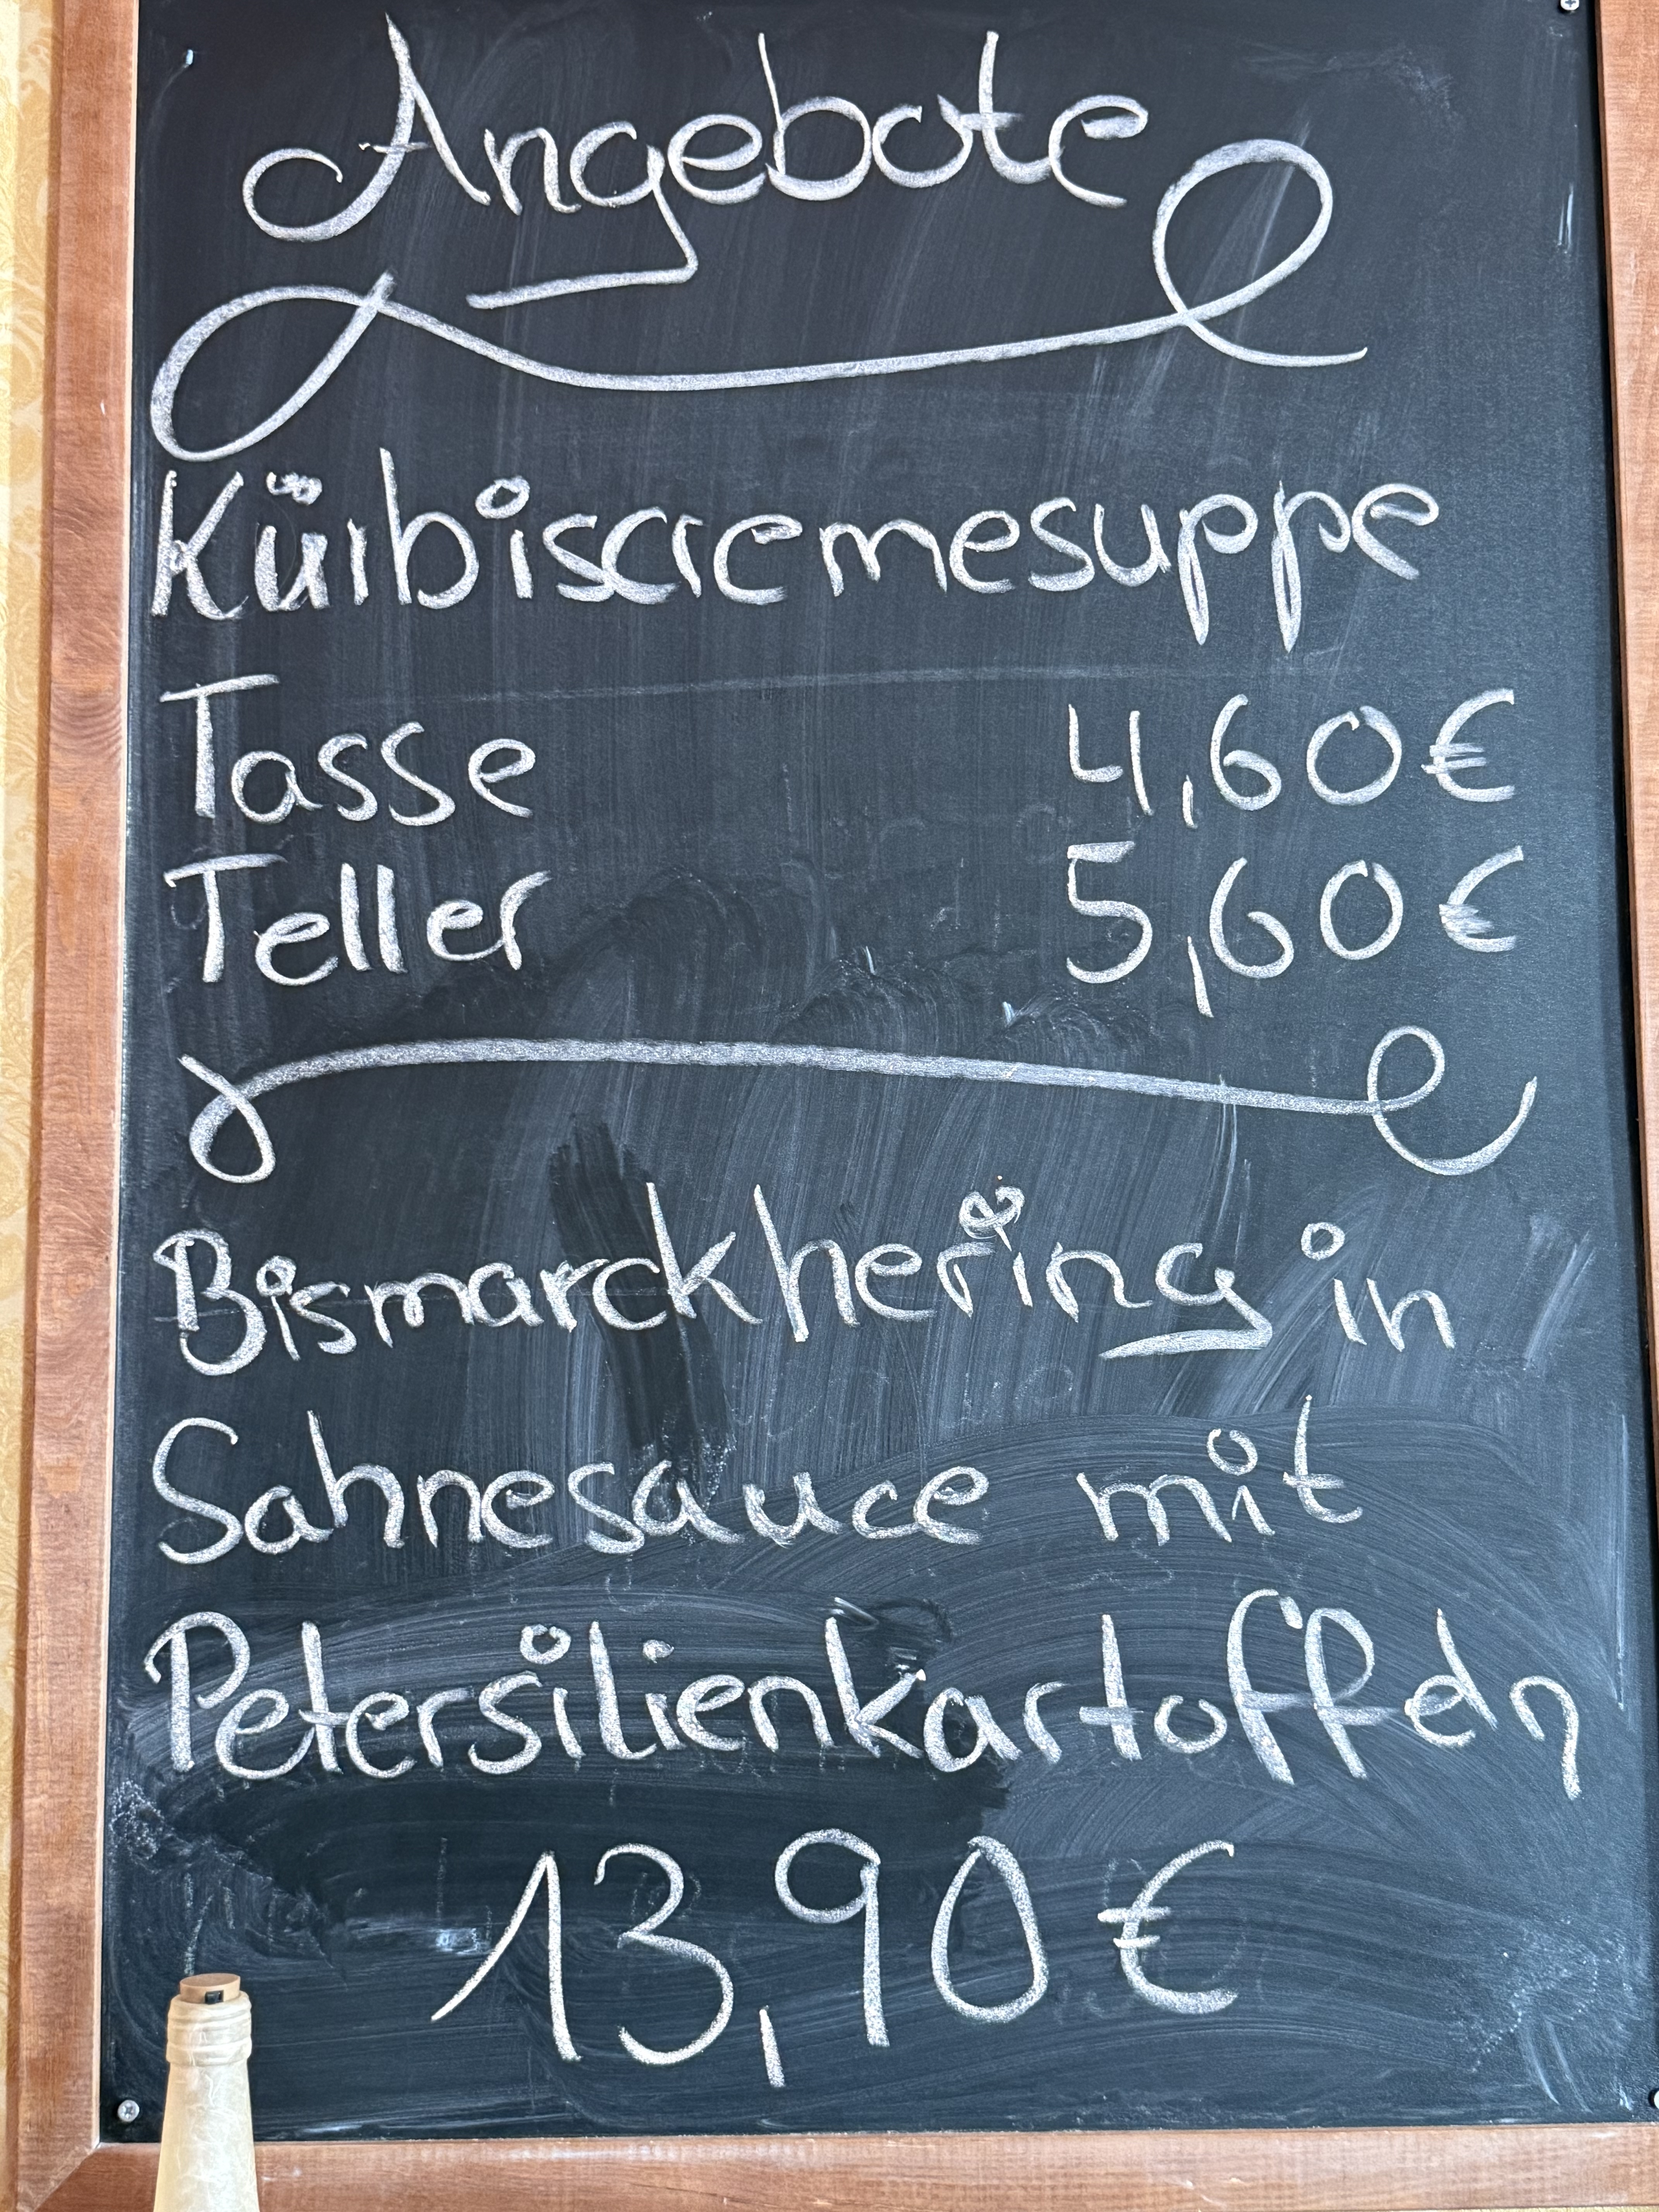 Angebote
Kürbiscremesuppe
Tasse 4,60€
Teller 5,60€
Bismarckhering in
Sahnesauce mit
Petersilienkartoffeln
13,90€